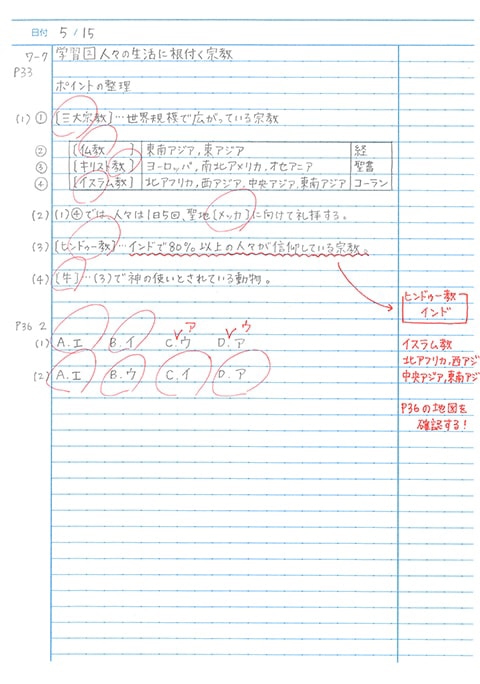 日付 5/15
ワーク 学習③ 人々の生活に根付く宗教
P33
ポイントの整理
(1) ① [三大宗教]…世界規模で広がっている宗教
② [仏教] 東南アジア,東アジア 経
③ [キリスト教] ヨーロッパ,南北アメリカ,オセアニア 聖書
④ [イスラム教] 北アフリカ,西アジア,中央アジア,東南アジア コーラン
(2) (1)④では、人々は1日5回、聖地[メッカ]に向けて礼拝する。
(3) [ヒンドゥー教]…インドで80%以上の人々が信仰している宗教。
(4) [牛]…(3)で神の使いとされている動物。
ヒンドゥー教
インド
P36 2
ア ウ
(1) A.エ B.イ C.ウ D.ア
イスラム教
北アフリカ,西アジ
(2) A.エ B.ウ C.イ D.ア
中央アジア,東南アジ
P36の地図を
確認する!